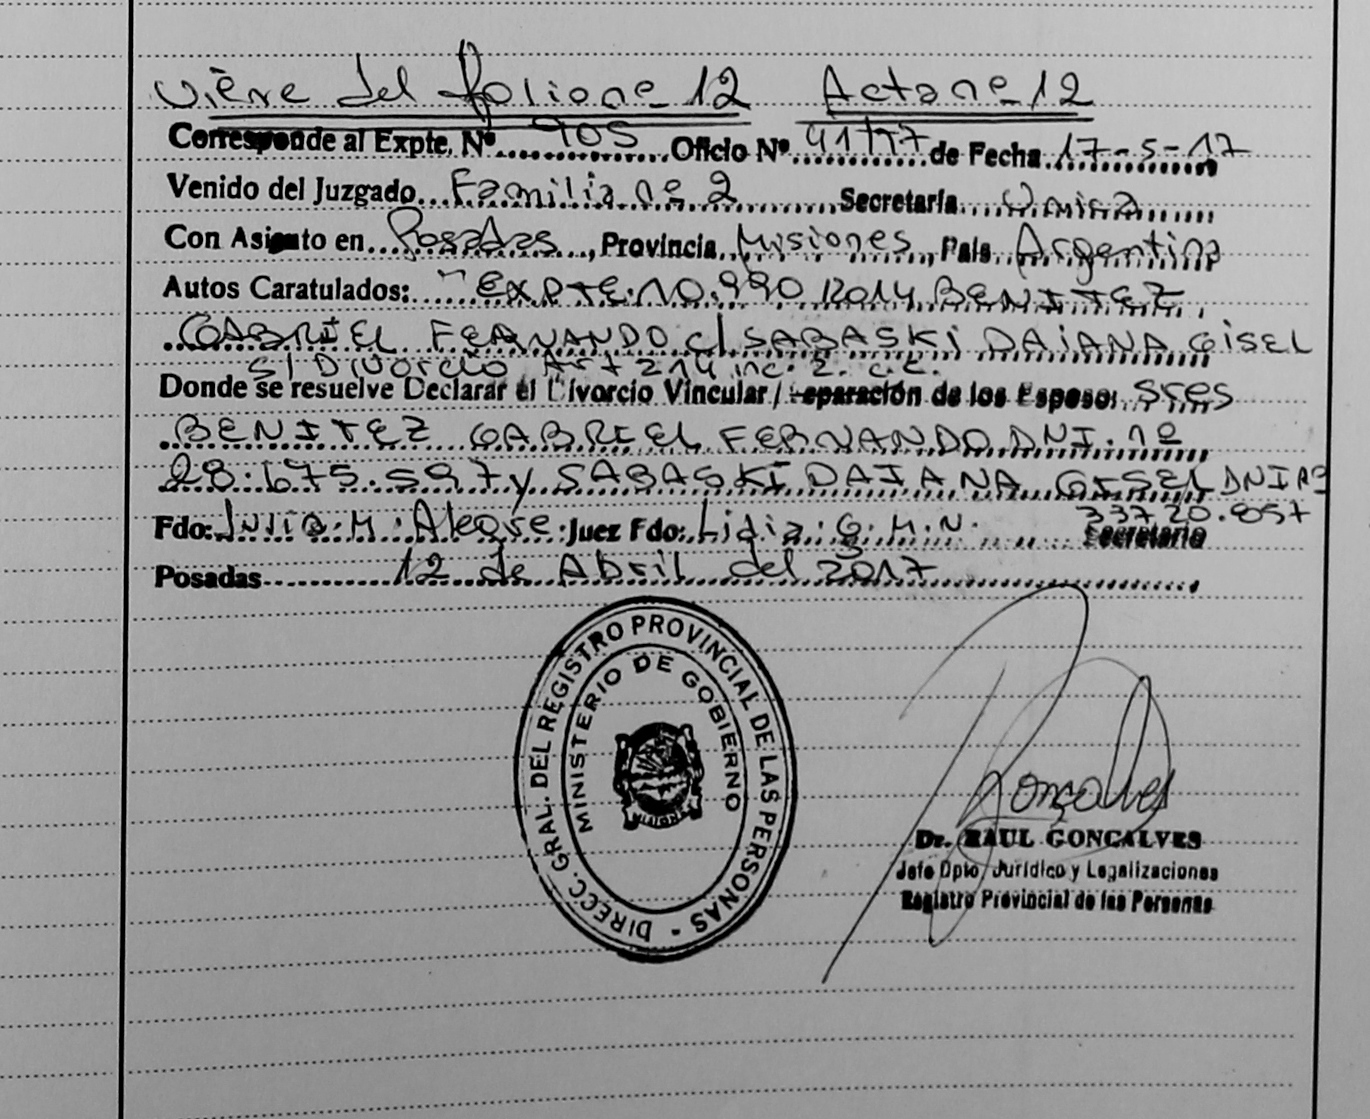 viene del folio nº 12 Acta nº 12
Corresponde al Expte. Nº 905 Oficio Nº 91/17 de Fecha 17-5-17
Venido del Juzgado Familia nº 2 Secretaría Unica
Con Asiento en Posadas, Provincia Misiones, País Argentina
Autos Caratulados: "EXPTE. 10.990/2014 BENITEZ
GABRIEL FERNANDO c/ SABASKI DAIANA GISEL
S/ Divorcio Art 214 inc. 2. c.c.
Donde se resuelve Declarar el Divorcio Vincular / Separación de los Esposos Sres
BENITEZ GABRIEL FERNANDO DNI. nº
28.675.597 y SABASKI DAIANA GISEL DNI nº
33720.857
Fdo: Julia M. Alegre Juez Fdo: Lidia G. M. N. Secretario
Posadas 12 de Abril del 2017
DIRECC. GRAL. DEL REGISTRO PROVINCIAL DE LAS PERSONAS -
MINISTERIO DE GOBIERNO
MISIONES
Gonçalves
Dr. RAUL GONCALVES
Jefe Dpto. Jurídico y Legalizaciones
Registro Provincial de las Personas